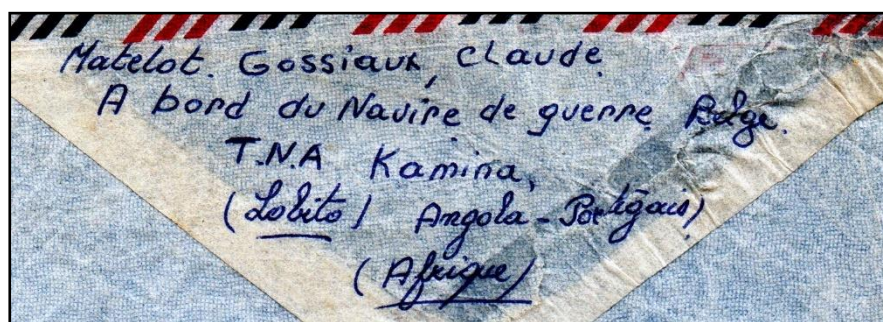 Matelot. Gossiaux, Claude.
A bord du Navire de guerre Belge.
T.N.A Kamina,
(Lobito) Angola-Portugais)
(Afrique)